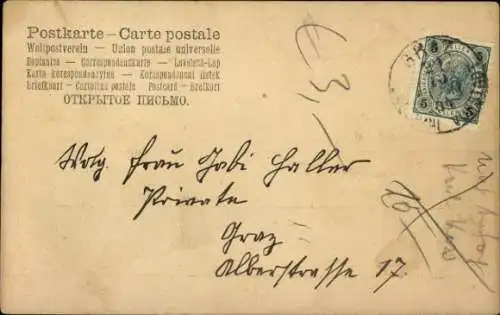 Postkarte – Carte postale
Weltpostverein — Union postale universelle
Dopisnice — Correspondenzkarte — Levelező-Lap
Karta korespondencyjna — Korespondenční lístek
Brefkort — Cartolina postale Postcard — Brefkort
ОТКРЫТОЕ ПИСЬМО.
€ 3,-
5 5
Wolg. Frau Gabi Haller
Private
Graz
Alberstrasse 17.